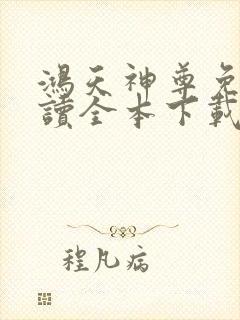 鴻天神尊免
讀全本下載
程凡病